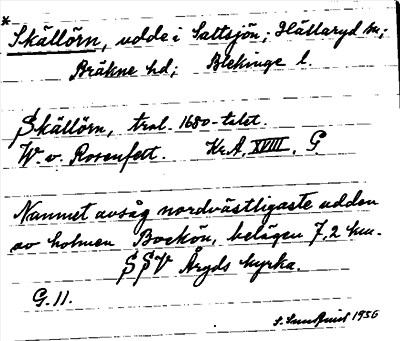 * Skällörn, udde i Saltsjön; Hällaryd sn;
Bräkne hd; Blekinge l.
Skällörn, tral. 1680-talet.
W. v. Rosenfelt. Kr.A. XVIII. G
Namnet avsåg nordvästligaste udden
av holmen Bockön, belägen 7,2 km.
SSV Åryds kyrka.
G.11.
S. Sundquist 1956